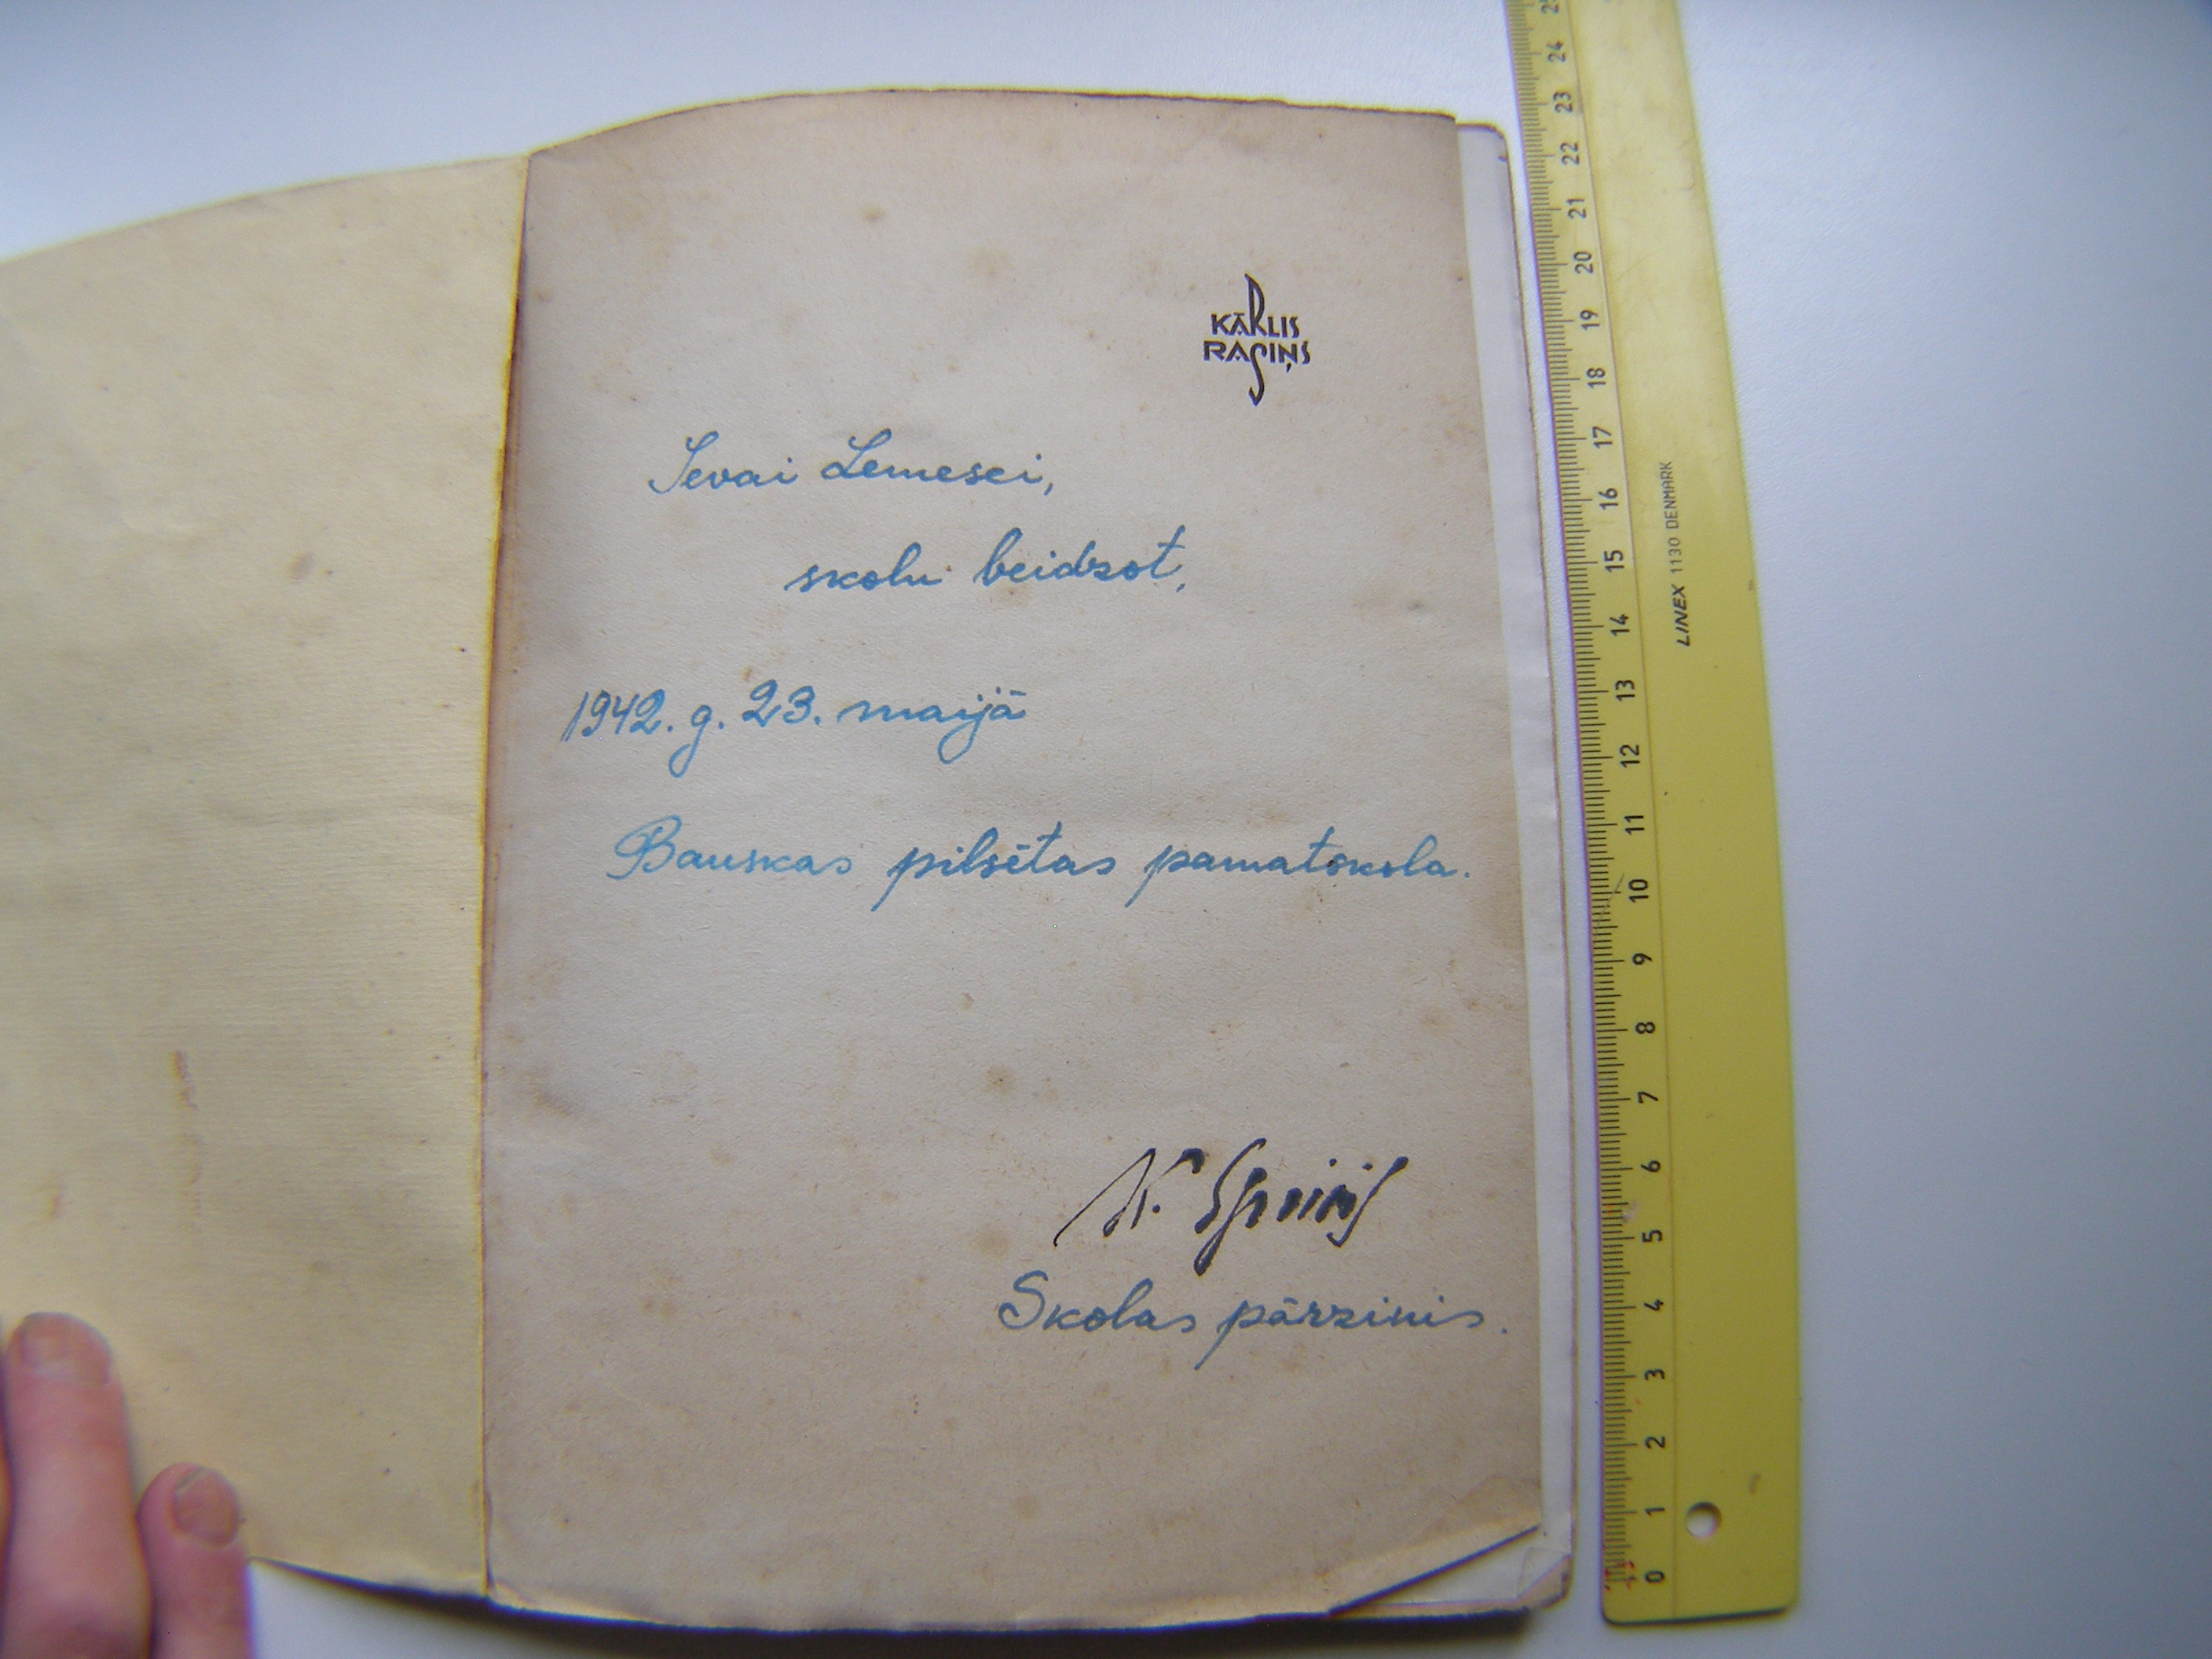 KĀRLIS
RASIŅŠ
Ievai Lemesei,
skolu beidzot,
1942. g. 23. maijā
Bauskas pilsētas pamatskola.
K.
Skolas pārzinis.
LINEX 1130 DENMARK
24
23
22
21
20
19
18
17
16
15
14
13
12
11
10
9
8
7
6
5
4
3
2
1
0